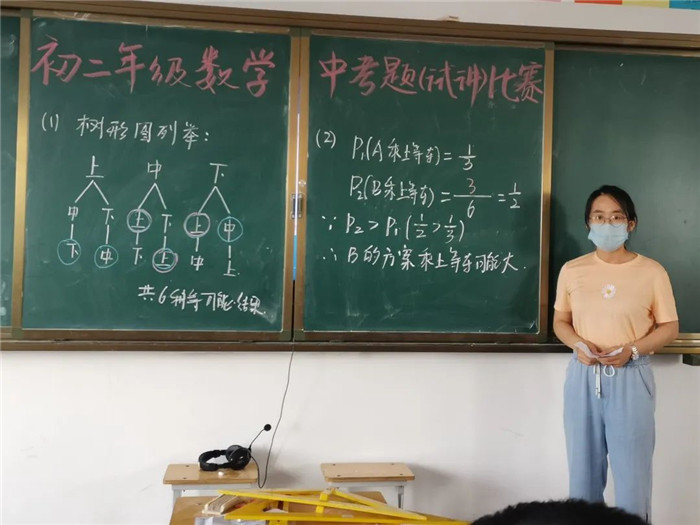 初二年级数学
中考题(试讲)比赛
(1) 树形图列举:
上 中 下
中 下 上 下 上 中
下 中 下 上 中 上
共6种等可能结果
(2)
P₁(A乘上等车)=1/3
P₂(B乘上等车)=3/6=1/2
∵ P₂>P₁(1/2>1/3)
∴ B的方案乘上等车可能大.